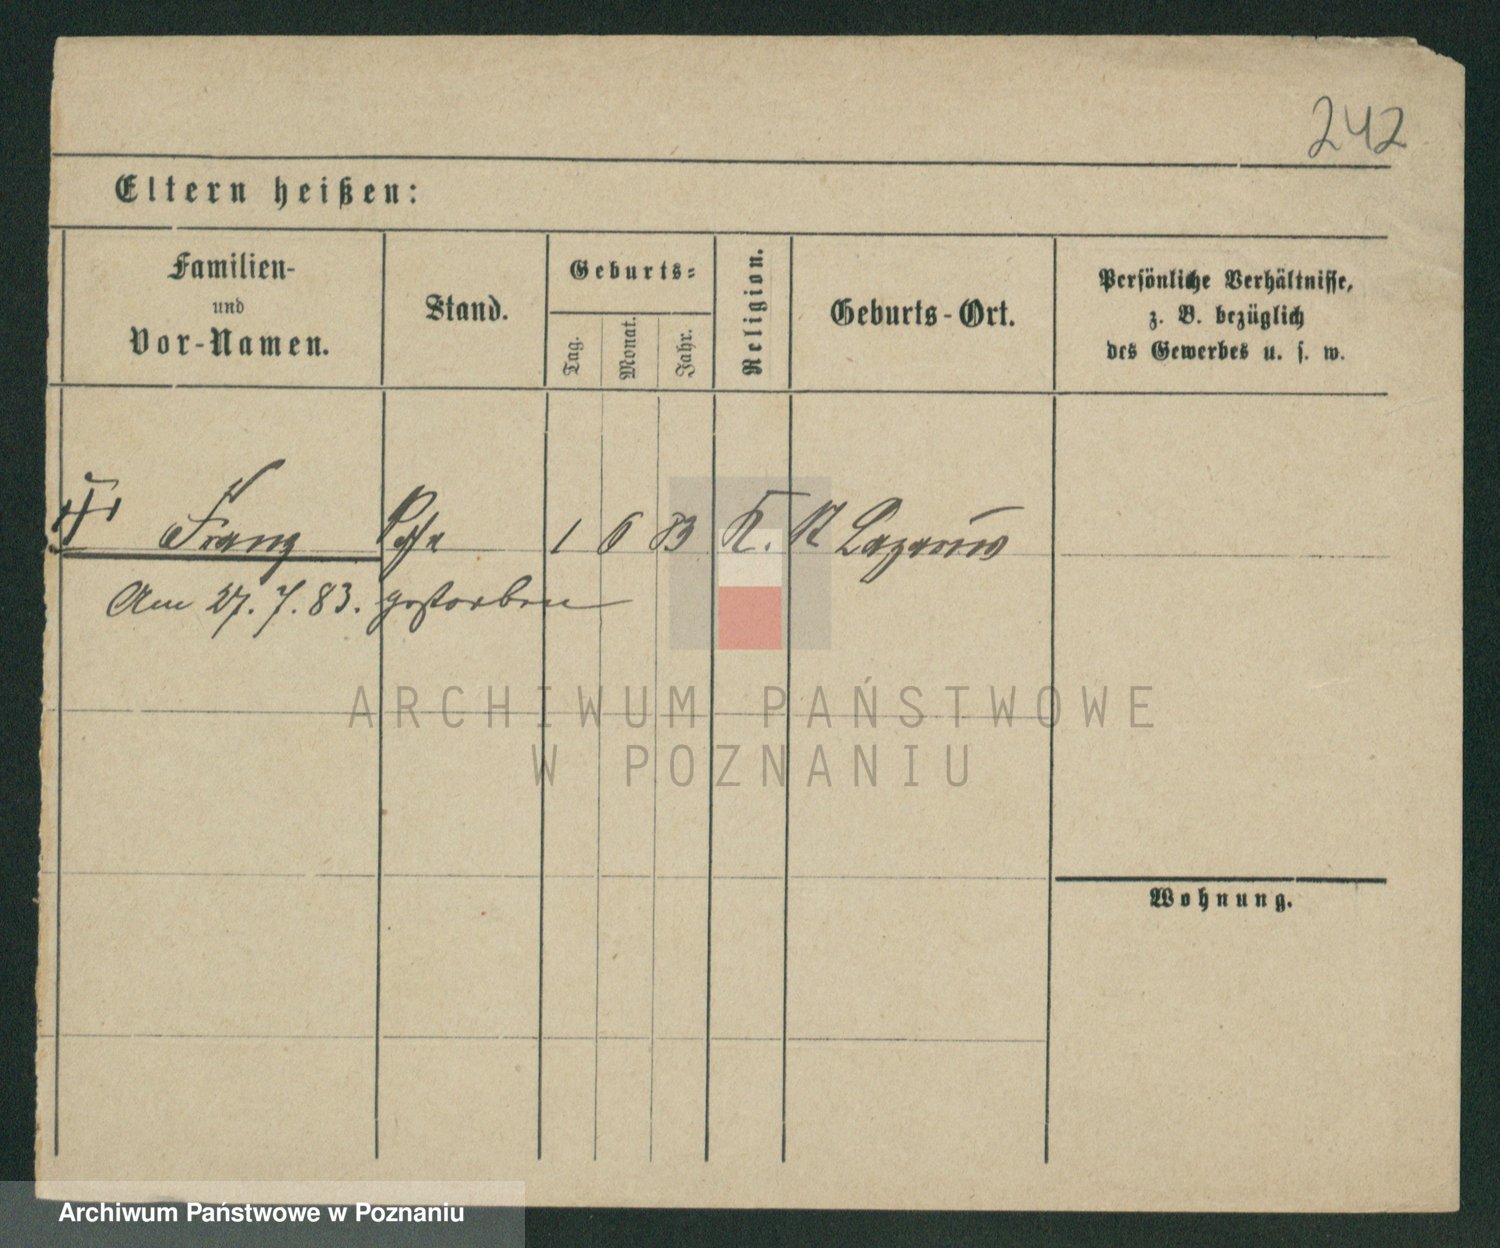 242
Eltern heißen:
Familien-
und
Vor-Namen.
Stand.
Geburts-
Tag.
Monat.
Jahr.
Religion.
Geburts-Ort.
Persönliche Verhältnisse,
z. B. bezüglich
des Gewerbes u. s. w.
Franz 1 6 83 K. St Lazarus
Am 27. 7. 83. gestorben
ARCHIWUM PAŃSTWOWE
W POZNANIU
Wohnung.
Archiwum Państwowe w Poznaniu